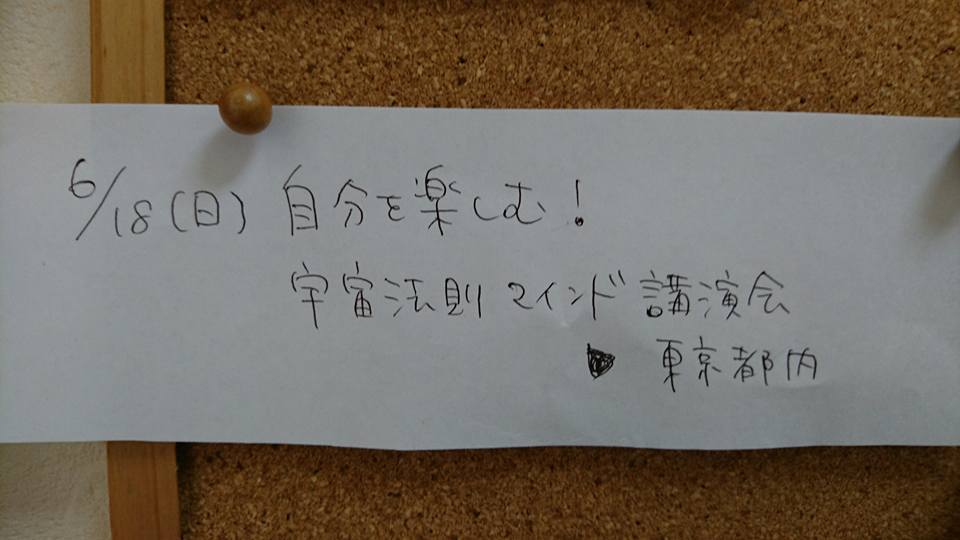 6/18(日) 自分を楽しむ!
宇宙法則マインド講演会
東京都内